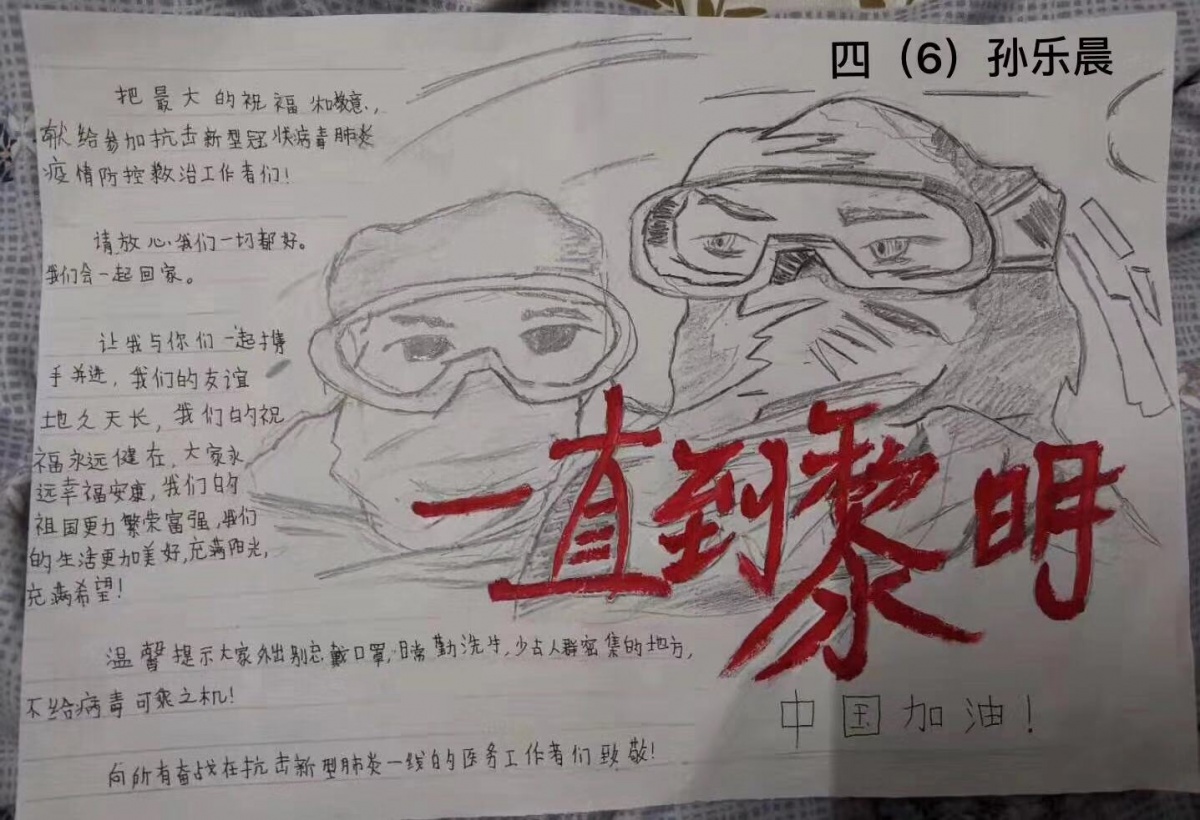 四（6）孙乐晨
把最大的祝福和敬意，
献给参加抗击新型冠状病毒肺炎
疫情防控救治工作者们！
请放心，我们一切都好。
我们会一起回家。
让我与你们一起携
手并进，我们的友谊
地久天长，我们的祝
福永远健在，大家永
远幸福安康，我们的
祖国更加繁荣富强，我们
的生活更加美好，充满阳光，
充满希望！
一直到黎明
温馨提示大家外出别忘戴口罩，日常勤洗手，少去人群密集的地方，
不给病毒可乘之机！
中国加油！
向所有奋战在抗击新型肺炎一线的医务工作者们致敬！